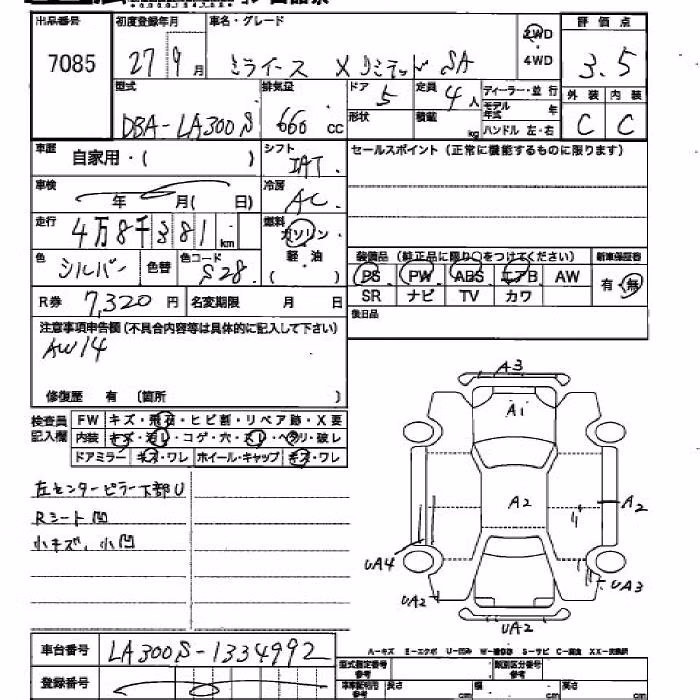 出品番号 初度登録年月 車名・グレード 評価点
7085 27 9月 ミライース Xリミテッド SA 2WD 3.5
4WD
型式 排気量 ドア 5 定員 4人 ディーラー・並行 外装 内装
モデル年式 年
DBA-LA300S 660 cc 形状 積載 kg ハンドル 左・右 C C
車歴 自家用・( ) シフト IAT セールスポイント(正常に機能するものに限ります)
車検 年 月( 日) 冷房 AC
走行 4万8千381km 燃料 ガソリン・軽油
装備品(純正品に限り○をつけてください) 新車保証書
色 シルバー 色替 色コード S28 PS PW ABS エアB AW 有・無
R券 7,320円 名変期限 月 日 SR ナビ TV カワ
注意事項申告欄(不具合内容等は具体的に記入して下さい) 後日品
AW14
修復歴 有 〔箇所 〕
検査員記入欄 FW キズ・飛石・ヒビ割・リペア跡・X要
内装 キズ・汚レ・コゲ・穴・スレ・ヘタリ・破レ
ドアミラー キズ・ワレ ホイール・キャップ キズ・ワレ
A3
A1
左センターピラー下部U
A2 A2
Rシート凹
小キズ、小凹
UA4 UA3
UA2 UA2
車台番号 LA300S-1334992
A-キズ E-エクボ U-凹み W-補修跡 S-サビ C-腐食 XX-交換済
登録番号 型式指定番号 類別区分番号
長さ cm 幅 cm 高さ cm